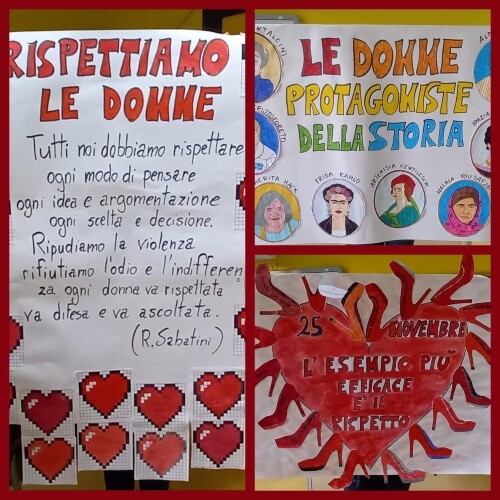 RISPETTIAMO
LE DONNE
Tutti noi dobbiamo rispettare
ogni modo di pensare
ogni idea e argomentazione
ogni scelta e decisione.
Ripudiamo la violenza
rifiutiamo l'odio e l'indifferen
za ogni donna va rispettata
va difesa e va ascoltata.
(R. Sabatini)
LE DONNE
PROTAGONISTE
DELLA STORIA
FRIDA KAHLO
ARTEMISIA GENTILESCHI
25
NOVEMBRE
L'ESEMPIO PIÙ
EFFICACE
E' IL
RISPETTO